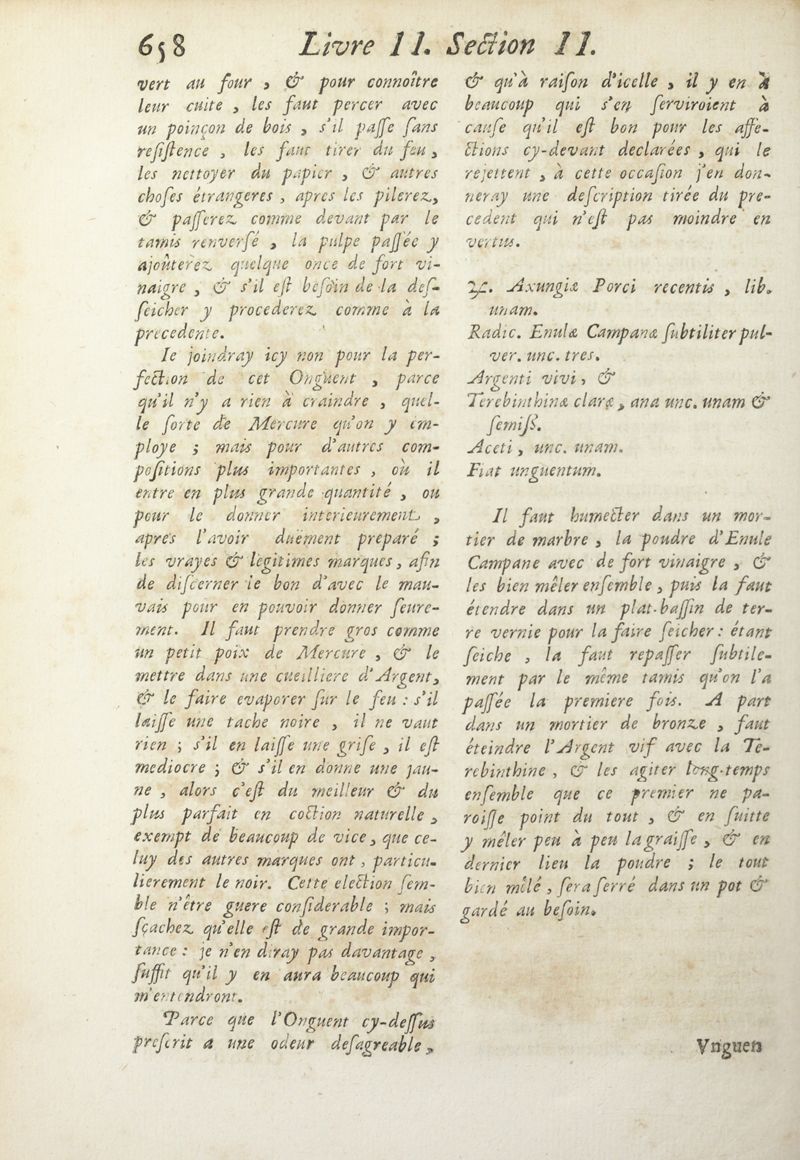 658 Livre II. Section II.
vert au four , & pour connoître
leur cuite , les faut percer avec
un poinçon de bois , s'il passe sans
resistence , les faut tirer du feu ,
les nettoyer du papier , & autres
choses étrangeres , apres les pilerez,
& passerez comme devant par le
tamis renversé , la pulpe passée y
ajoûterez quelque once de fort vi-
naigre , & s'il est besoin de la des-
seicher y procederez comme à la
precedente.
Ie joindray icy non pour la per-
fection de cet Onguent , parce
qu'il n'y a rien à craindre , quel-
le sorte de Mercure qu'on y em-
ploye ; mais pour d'autres com-
positions plus importantes , où il
entre en plus grande quantité , ou
pour le donner interieurement ,
apres l'avoir duëment preparé ;
les vrayes & legitimes marques, afin
de discerner le bon d'avec le mau-
vais pour en pouvoir donner seure-
ment. Il faut prendre gros comme
un petit poix de Mercure , & le
mettre dans une cueilliere d'Argent,
& le faire evaporer sur le feu : s'il
laisse une tache noire , il ne vaut
rien ; s'il en laisse une grise , il est
mediocre ; & s'il en donne une jau-
ne , alors c'est du meilleur & du
plus parfait en coction naturelle ,
exempt de beaucoup de vice, que ce-
luy des autres marques ont, particu-
lierement le noir. Cette election sem-
ble n'être guere considerable ; mais
sçachez qu'elle est de grande impor-
tance : je n'en diray pas davantage ,
suffit qu'il y en aura beaucoup qui
m'entendront.
Parce que l'Onguent cy-dessus
prescrit a une odeur desagreable ,
& qu'à raison d'icelle , il y en a
beaucoup qui s'en serviroient à
cause qu'il est bon pour les affe-
ctions cy-devant declarées , qui le
rejettent , à cette occasion j'en don-
neray une description tirée du pre-
cedent qui n'est pas moindre en
vertus.
℞. Axungiæ Porci recentis , lib.
unam.
Radic. Enulæ Campanæ subtiliter pul-
ver. unc. tres.
Argenti vivi, &
Terebinthinæ claræ, ana unc. unam &
semiss.
Aceti , unc. unam.
Fiat unguentum.
Il faut humecter dans un mor-
tier de marbre , la poudre d'Enule
Campane avec de fort vinaigre , &
les bien mêler ensemble , puis la faut
étendre dans un plat-bassin de ter-
re vernie pour la faire seicher : étant
seiche , la faut repasser subtile-
ment par le même tamis qu'on l'a
passée la premiere fois. A part
dans un mortier de bronze , faut
éteindre l'Argent vif avec la Te-
rebinthine , & les agiter long-temps
ensemble que ce premier ne pa-
roisse point du tout , & en suitte
y mêler peu à peu la graisse , & en
dernier lieu la poudre ; le tout
bien mêlé , sera serré dans un pot &
gardé au besoin.
Vnguen